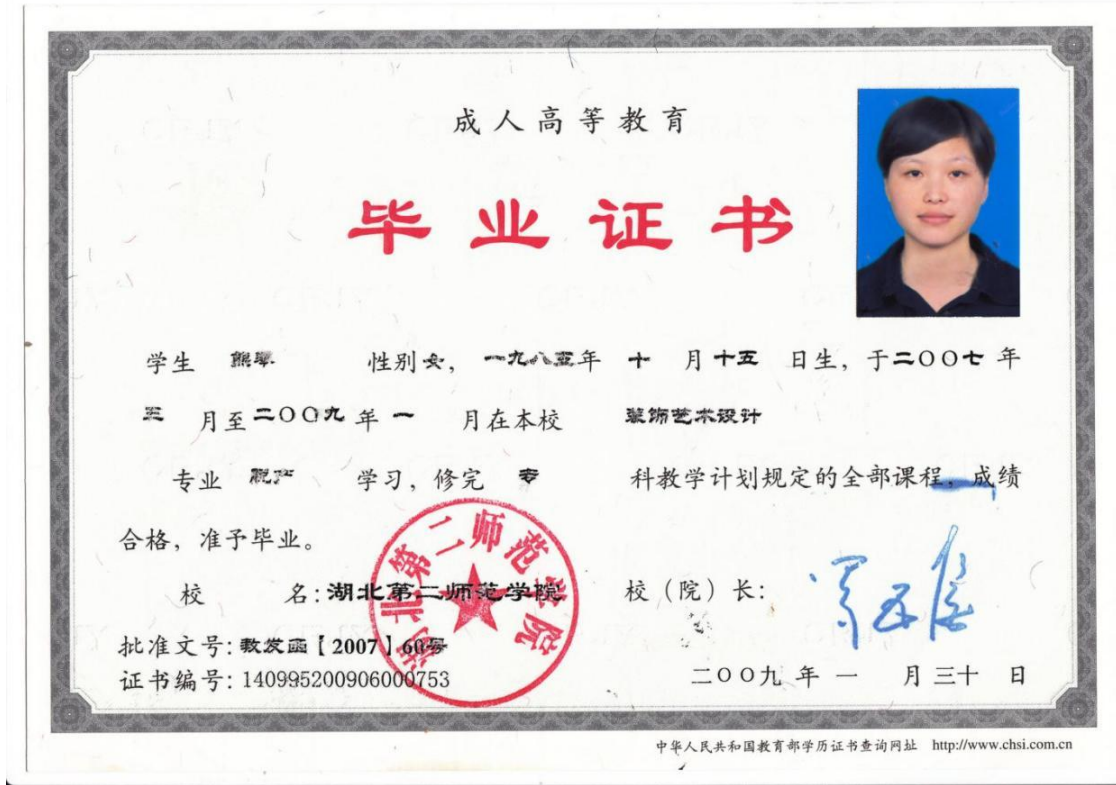 成人高等教育
毕业证书
学生 熊 性别女，一九八五年 十 月十五 日生，于二〇〇七 年
三 月至二〇〇九 年 一 月在本校 装饰艺术设计
专业 脱产 学习，修完 专 科教学计划规定的全部课程，成绩
合格，准予毕业。
湖北第二师范学院
校 名：湖北第二师范学院 校（院）长：
批准文号：教发函【2007】60号
证书编号：140995200906000753 二〇〇九 年 一 月 三十 日
中华人民共和国教育部学历证书查询网址 http://www.chsi.com.cn